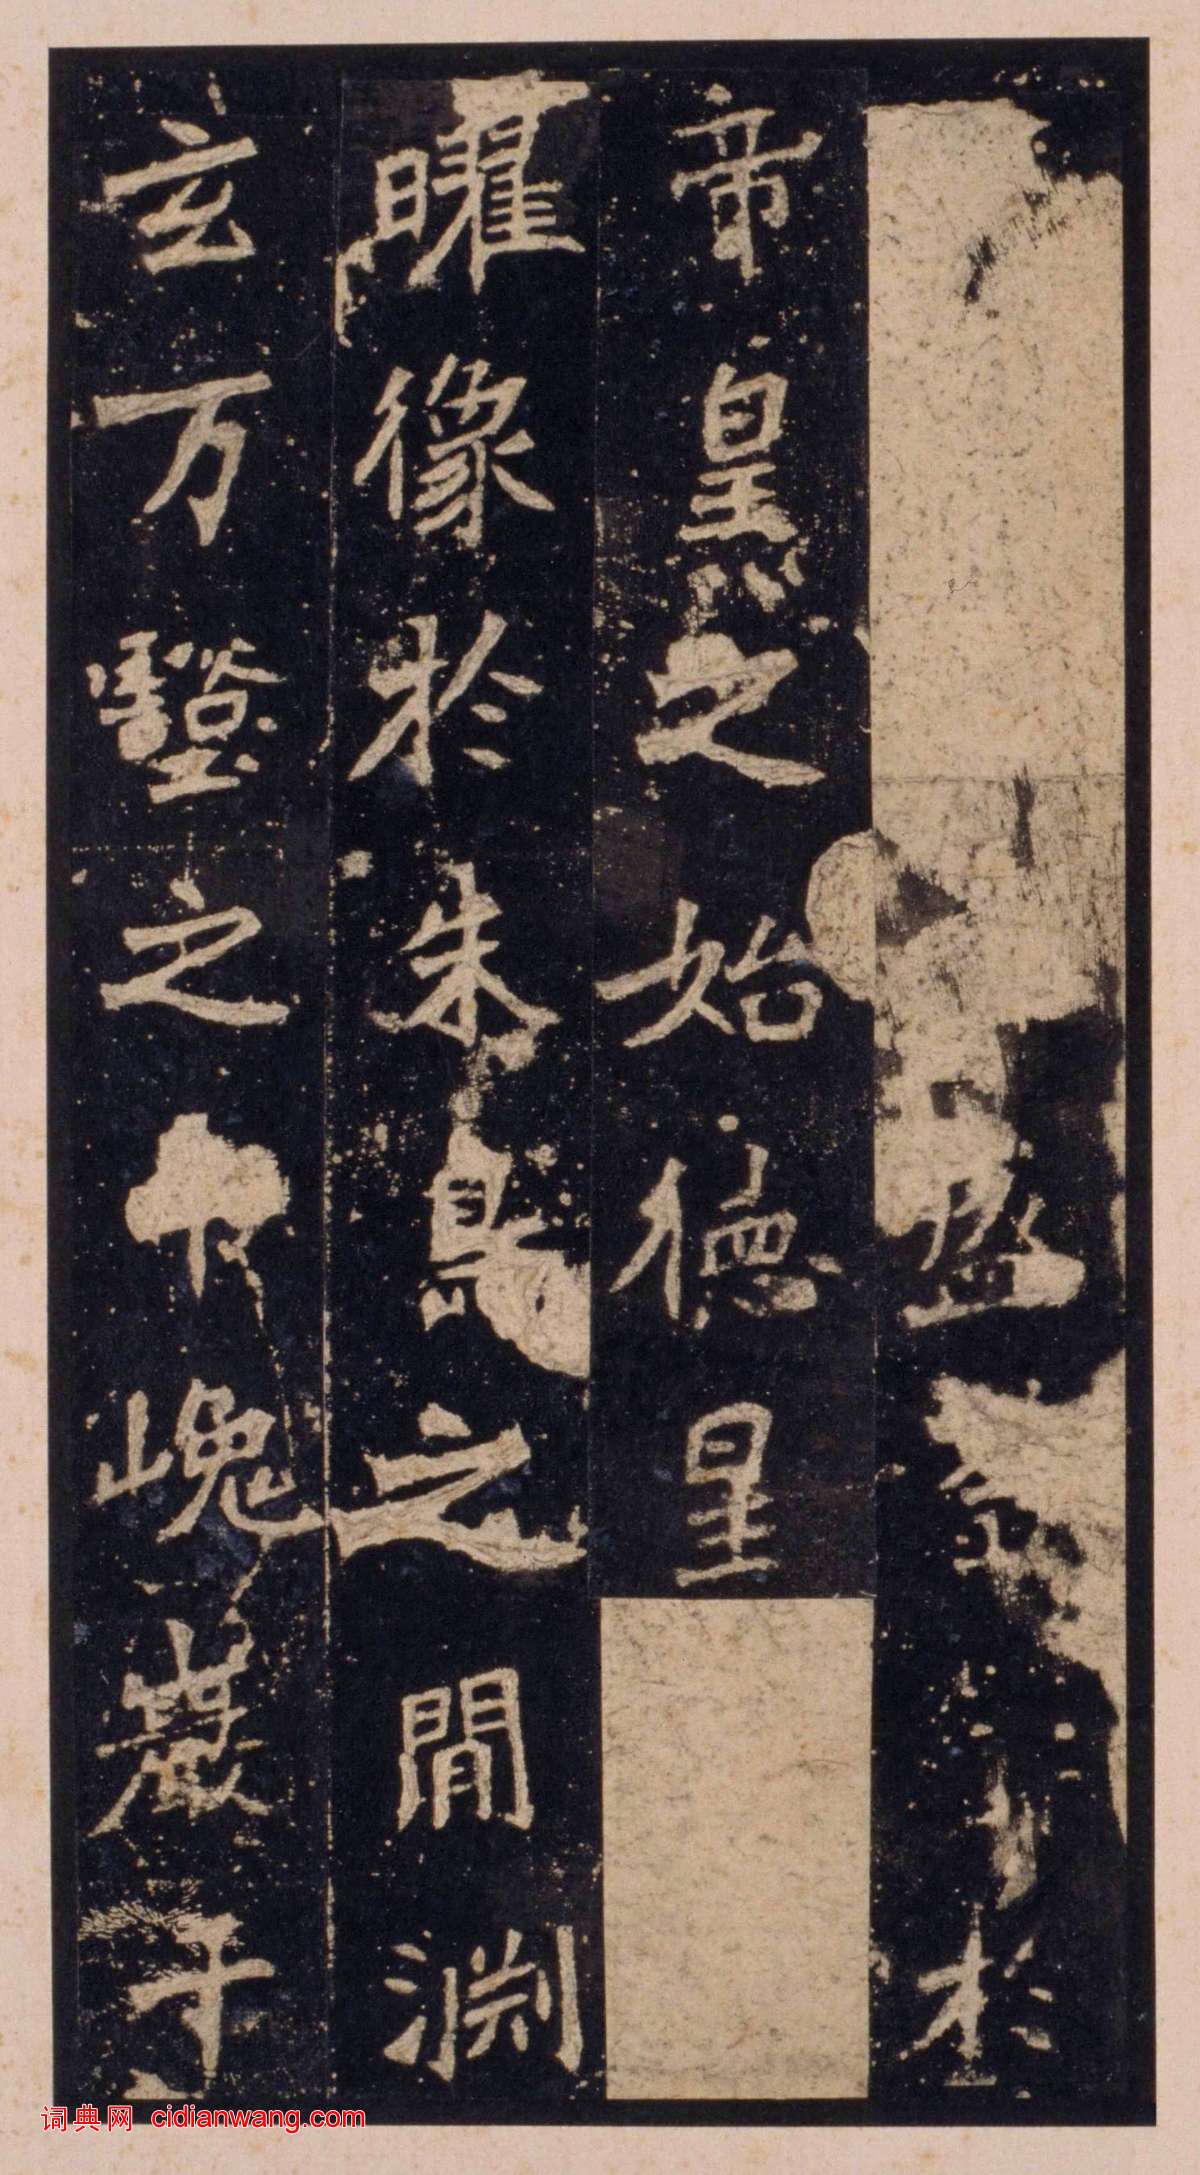 盛
於
帝皇之始德星
曜像於朱鳥之間淵
玄万壑之中巍巖千
词典网 cidianwang.com